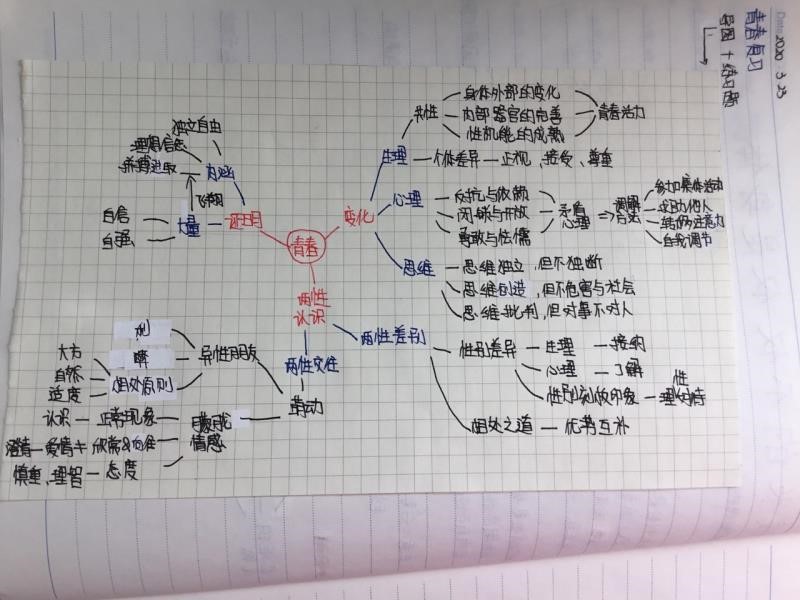 Date 2020.3.23
青春复习
导图+练习题
青春
变化
生理
共性
身体外部的变化
内部器官的完善
性机能的成熟
青春活力
个体差异 — 正视、接受、尊重
心理
反抗与依赖
闭锁与开放
勇敢与怯懦
矛盾
心理
调解
方法
参加集体活动
求助他人
转移注意力
自我调节
思维
思维独立,但不独断
思维创造,但不危害与社会
思维批判,但对事不对人
证明
内涵
独立自由
理想信念
拼搏进取
飞翔
力量
自信
自强
两性
认识
两性差别
性别差异
生理 — 接纳
心理 — 了解
性别刻板印象 — 理性对待
相处之道 — 优势互补
两性交往
异性朋友
利
弊
相处原则
大方
自然
适度
萌动
朦胧
情感
认识 — 正常现象
澄清 — 爱情≠欣赏&向往
慎重、理智 — 态度